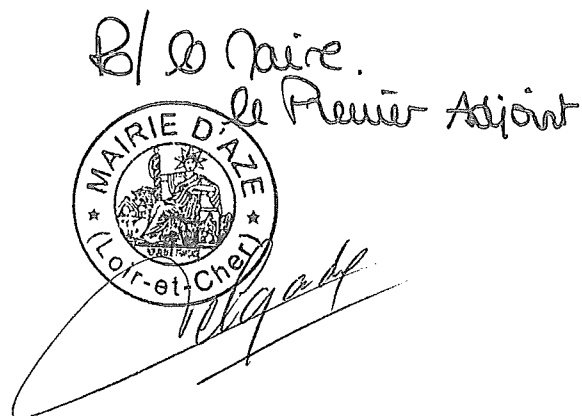 P/ le Maire.
le Premier Adjoint
MAIRIE D'AZE
(Loir-et-Cher)